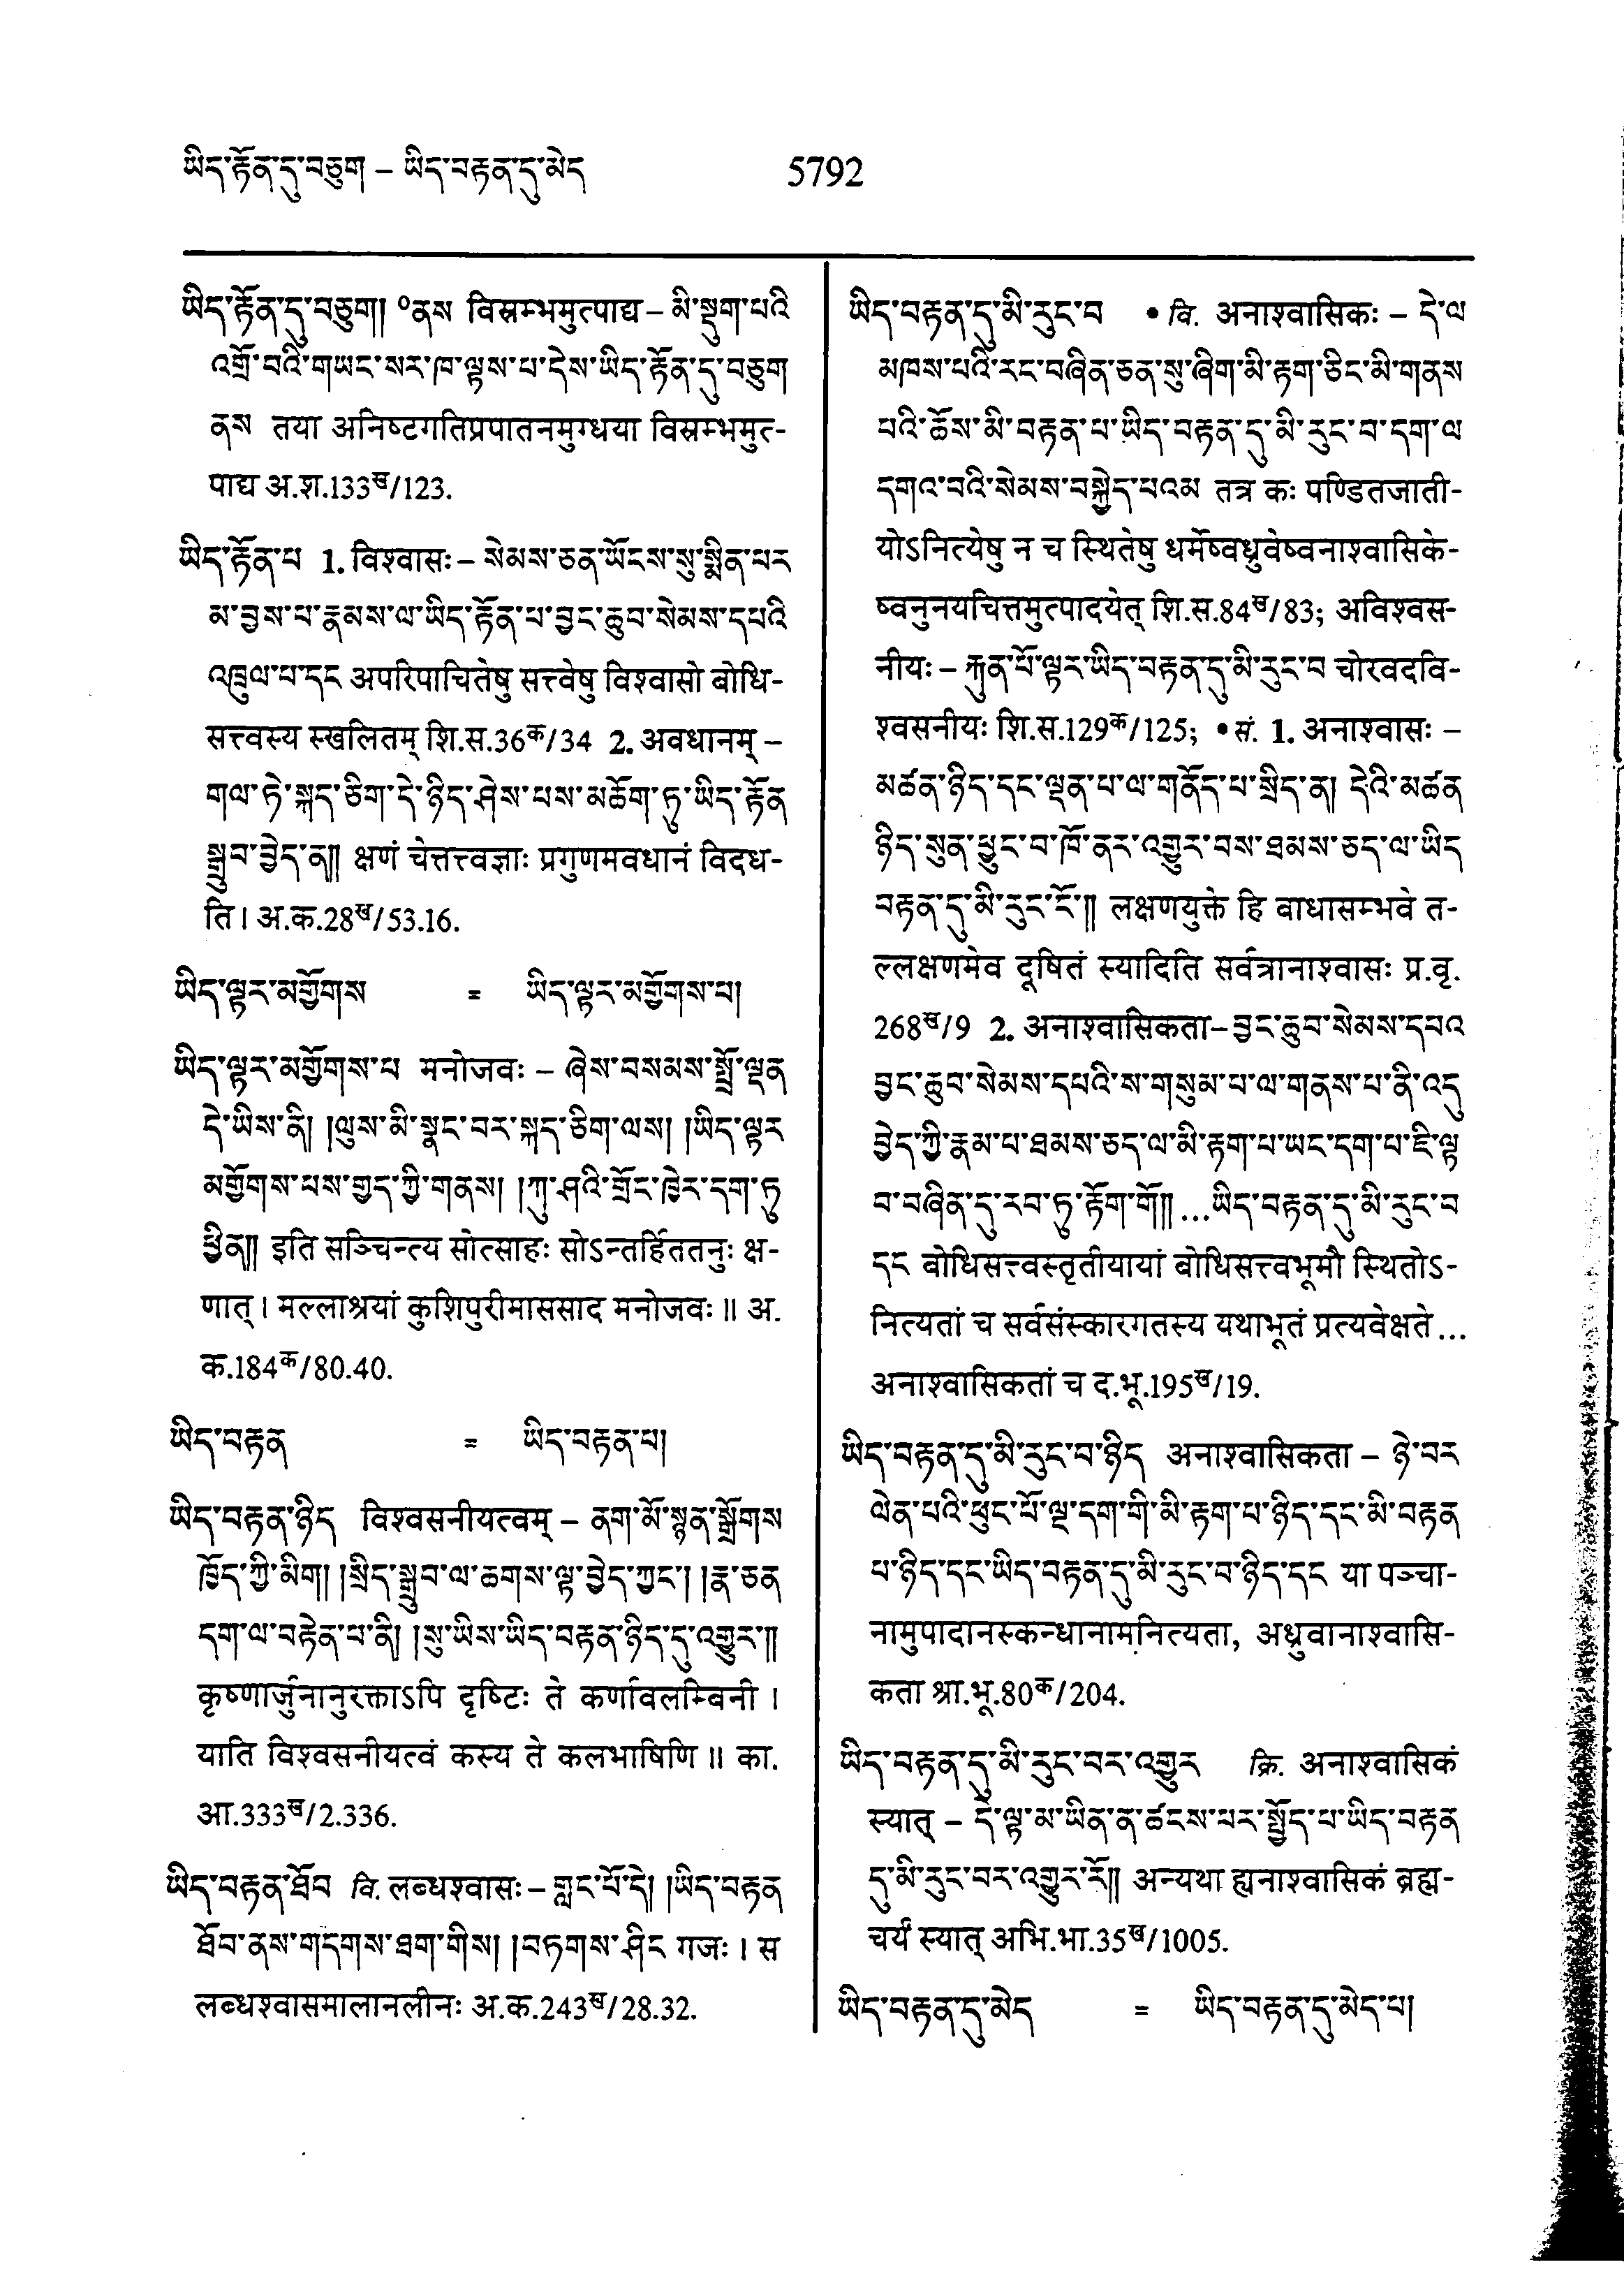 ཡིད་རྟོན་དུ་བཅུག – ཡིད་བརྟན་དུ་མེད
5792
ཡིད་རྟོན་དུ་བཅུག། °ནས विस्रम्भमुत्पाद्य – མི་སྡུག་པའི
འགྲོ་བའི་གཡང་སར་ཁ་ལྟས་པ་དེས་ཡིད་རྟོན་དུ་བཅུག
ནས तया अनिष्टगतिप्रपातनमुग्धया विस्रम्भमुत्-
पाद्य अ.श.133ख/123.
ཡིད་རྟོན་པ 1. विश्वासः – སེམས་ཅན་ཡོངས་སུ་སྨིན་པར
མ་བྱས་པ་རྣམས་ལ་ཡིད་རྟོན་པ་བྱང་ཆུབ་སེམས་དཔའི
འཁྲུལ་པ་དང अपरिपाचितेषु सत्त्वेषु विश्वासो बोधि-
सत्त्वस्य स्खलितम् शि.स.36क/34 2. अवधानम् –
གལ་ཏེ་སྐད་ཅིག་དེ་ཉིད་ཤེས་པས་མཆོག་ཏུ་ཡིད་རྟོན
སྒྲུབ་བྱེད་ན།། क्षणं चेत्तत्त्वज्ञाः प्रगुणमवधानं विदध-
ति । अ.क.28ख/53.16.
ཡིད་ལྟར་མགྱོགས = ཡིད་ལྟར་མགྱོགས་པ།
ཡིད་ལྟར་མགྱོགས་པ मनोजवः – ཞེས་བསམས་སྤྲོ་ལྡན
དེ་ཡིས་ནི། །ལུས་མི་སྣང་བར་སྐད་ཅིག་ལས། །ཡིད་ལྟར
མགྱོགས་པས་གྱད་ཀྱི་གནས། །ཀུ་ཤའི་གྲོང་ཁྱེར་དག་ཏུ
ཕྱིན།། इति सञ्चिन्त्य सोत्साहः सोऽन्तर्हिततनुः क्ष-
णात् । मल्लाश्रयां कुशिपुरीमाससाद मनोजवः ॥ अ.
क.184क/80.40.
ཡིད་བརྟན = ཡིད་བརྟན་པ།
ཡིད་བརྟན་ཉིད विश्वसनीयत्वम् – ནག་མོ་སྙན་སྒྲོགས
ཁྱོད་ཀྱི་མིག། །སྲིད་སྒྲུབ་ལ་ཆགས་ལྟ་བྱེད་ཀྱང་། །རྣ་ཅན
དག་ལ་བརྟེན་པ་ནི། །སུ་ཡིས་ཡིད་བརྟན་ཉིད་དུ་འགྱུར་།།
कृष्णार्जुनानुरक्ताऽपि दृष्टिः ते कर्णावलम्बिनी ।
याति विश्वसनीयत्वं कस्य ते कलभाषिणि ॥ का.
आ.333ख/2.336.
ཡིད་བརྟན་ཐོབ वि. लब्धश्वासः – གླང་པོ་དེ། །ཡིད་བརྟན
ཐོབ་ནས་གདགས་ཐག་གིས། །བཏགས་ཤིང गजः । स
लब्धश्वासमालानलीनः अ.क.243ख/28.32.
ཡིད་བརྟན་དུ་མི་རུང་བ • वि. अनाश्वासिकः – དེ་ལ
མཁས་པའི་རང་བཞིན་ཅན་སུ་ཞིག་མི་རྟག་ཅིང་མི་གནས
པའི་ཆོས་མི་བརྟན་པ་ཡིད་བརྟན་དུ་མི་རུང་བ་དག་ལ
དགའ་བའི་སེམས་བསྐྱེད་པའམ तत्र कः पण्डितजाती-
योऽनित्येषु न च स्थितेषु धर्मेष्वध्रुवेष्वनाश्वासिके-
ष्वनुनयचित्तमुत्पादयेत् शि.स.84ख/83; अविश्वस-
नीयः – རྐུན་པོ་ལྟར་ཡིད་བརྟན་དུ་མི་རུང་བ चोरवदवि-
श्वसनीयः शि.स.129क/125; • सं. 1. अनाश्वासः –
མཚན་ཉིད་དང་ལྡན་པ་ལ་གནོད་པ་སྲིད་ན། དེའི་མཚན
ཉིད་སུན་ཕྱུང་བ་ཁོ་ནར་འགྱུར་བས་ཐམས་ཅད་ལ་ཡིད
བརྟན་དུ་མི་རུང་ངོ་།། लक्षणयुक्ते हि बाधासम्भवे त-
ल्लक्षणमेव दूषितं स्यादिति सर्वत्रानाश्वासः प्र.वृ.
268ख/9 2. अनाश्वासिकता– བྱང་ཆུབ་སེམས་དཔའ
བྱང་ཆུབ་སེམས་དཔའི་ས་གསུམ་པ་ལ་གནས་པ་ནི་འདུ
བྱེད་ཀྱི་རྣམ་པ་ཐམས་ཅད་ལ་མི་རྟག་པ་ཡང་དག་པ་ཇི་ལྟ
བ་བཞིན་དུ་རབ་ཏུ་རྟོག་གོ།། ...ཡིད་བརྟན་དུ་མི་རུང་བ
དང बोधिसत्त्वस्तृतीयायां बोधिसत्त्वभूमौ स्थितोऽ-
नित्यतां च सर्वसंस्कारगतस्य यथाभूतं प्रत्यवेक्षते ...
अनाश्वासिकतां च द.भू.195ख/19.
ཡིད་བརྟན་དུ་མི་རུང་བ་ཉིད अनाश्वासिकता – ཉེ་བར
ལེན་པའི་ཕུང་པོ་ལྔ་དག་གི་མི་རྟག་པ་ཉིད་དང་མི་བརྟན
པ་ཉིད་དང་ཡིད་བརྟན་དུ་མི་རུང་བ་ཉིད་དང या पञ्चा-
नामुपादानस्कन्धानामनित्यता, अध्रुवानाश्वासि-
कता श्रा.भू.80क/204.
ཡིད་བརྟན་དུ་མི་རུང་བར་འགྱུར क्रि. अनाश्वासिकं
स्यात् – དེ་ལྟ་མ་ཡིན་ན་ཚངས་པར་སྤྱོད་པ་ཡིད་བརྟན
དུ་མི་རུང་བར་འགྱུར་རོ།། अन्यथा ह्यनाश्वासिकं ब्रह्म-
चर्यं स्यात् अभि.भा.35ख/1005.
ཡིད་བརྟན་དུ་མེད = ཡིད་བརྟན་དུ་མེད་པ།